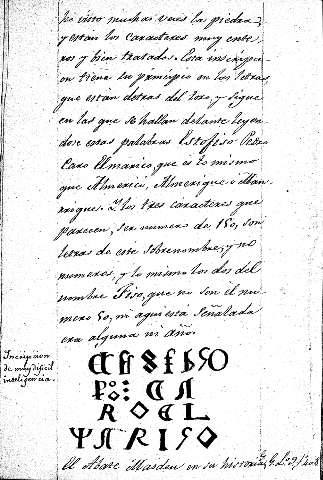 he visto muchas veces la piedra,
y estan los caracteres muy ente-
ros y bien tratados. Esta inscripci-
on tiene su principio en las letras
que están detras del toro, y sigue
en las que se hallan delante leyen-
dose estas palabras Estofiso Petro
Caro Elmarico, que es lo mismo
que Almerico, Almerique o Man-
rrique. Y los tres caracteres que
parecen, ser numero de 150, son
letras de este sobrenombre, y no
numeros, y lo mismo los dos del
nombre Fiso, que no son el nu-
mero 50, ni aqui está señalada
era alguna ni año.
Inscripcion
de muy dificil
inteligencia.
CA
RO
El Abate Masdeu en su historia